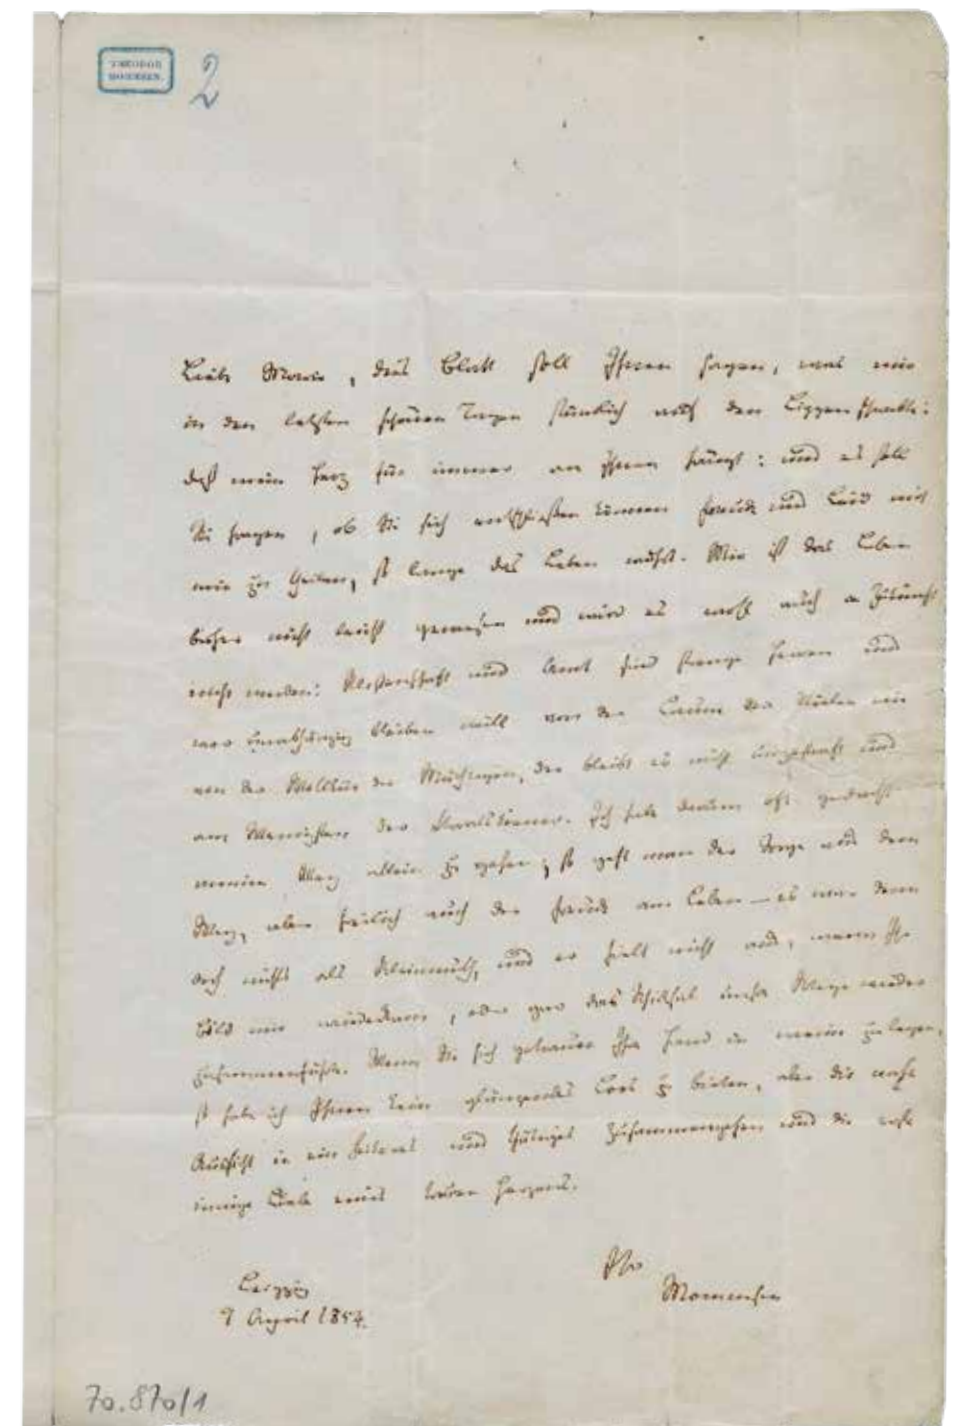 THEODOR
MOMMSEN.
2
Liebe Marie, dies Blatt soll Ihnen sagen, was mir
in den letzten schönen Tagen stündlich auf den Lippen schwebte:
daß mein Herz für immer an Ihnen hängt: und es soll
Sie fragen, ob Sie sich entschließen können Freude und Leid mit
mir zu theilen, so lange das Leben währt. Mir ist das Leben
bisher nicht leicht gewesen und wird es wohl auch in Zukunft
nicht werden: Wissenschaft und Amt sind strenge Herren und
wer unabhängig bleiben will von der Laune der Vielen wie
von der Willkür der Mächtigen, der bleibt es nicht ungestraft und
am Wenigsten der Staatsdiener. Ich habe darum oft gedacht
meinen Weg allein zu gehen; so geht man der Sorge aus dem
Weg, aber freilich auch der Freude am Leben — es war denn
doch nichts als Kleinmuth, und er hielt nicht aus, wenn Ihr
Bild mir wiederkam, oder gar das Schicksal unsre Wege wieder
zusammenführte. Wenn Sie sich getrauen Ihre Hand in meine zu legen,
so habe ich Ihnen kein glänzendes Loos zu bieten, aber die
Aussicht in ein heiteres und thätiges Zusammengehen und die
innige Liebe eines treuen Herzens.
Ihr
Mommsen
Leipzig
9 April 1854.
70.870/1